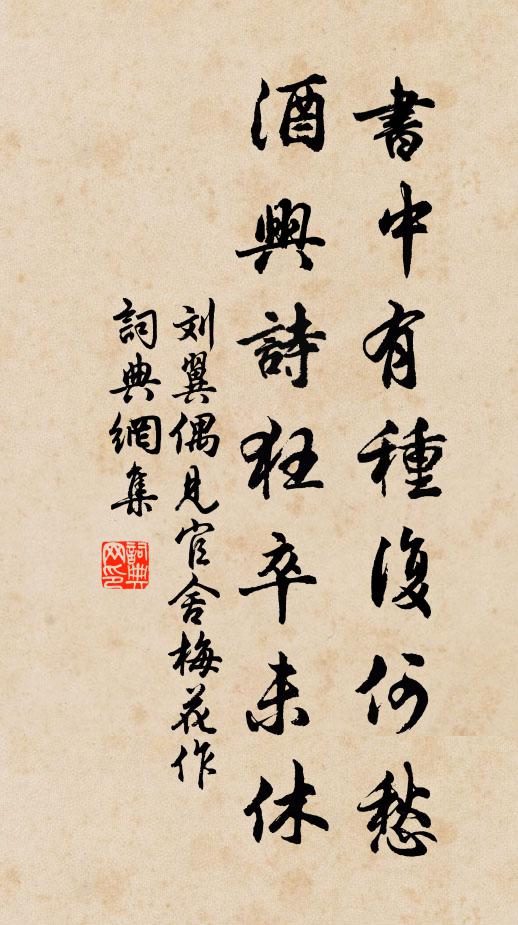 書中有種復何愁
酒興詩狂卒未休
刘翼偶見官舍梅花作
詞典網集
詞典网印